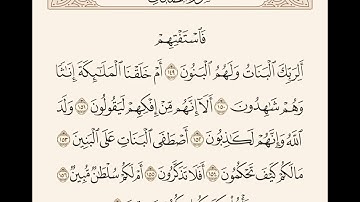 فَٱسْتَفْتِهِمْ
أَلِرَبِّكَ ٱلْبَنَاتُ وَلَهُمُ ٱلْبَنُونَ ١٤٩ أَمْ خَلَقْنَا ٱلْمَلَٰٓئِكَةَ إِنَٰثًا
وَهُمْ شَٰهِدُونَ ١٥٠ أَلَآ إِنَّهُم مِّنْ إِفْكِهِمْ لَيَقُولُونَ ١٥١ وَلَدَ
ٱللَّهُ وَإِنَّهُمْ لَكَٰذِبُونَ ١٥٢ أَصْطَفَى ٱلْبَنَاتِ عَلَى ٱلْبَنِينَ ١٥٣
مَا لَكُمْ كَيْفَ تَحْكُمُونَ ١٥٤ أَفَلَا تَذَكَّرُونَ ١٥٥ أَمْ لَكُمْ سُلْطَٰنٌ مُّبِينٌ ١٥٦